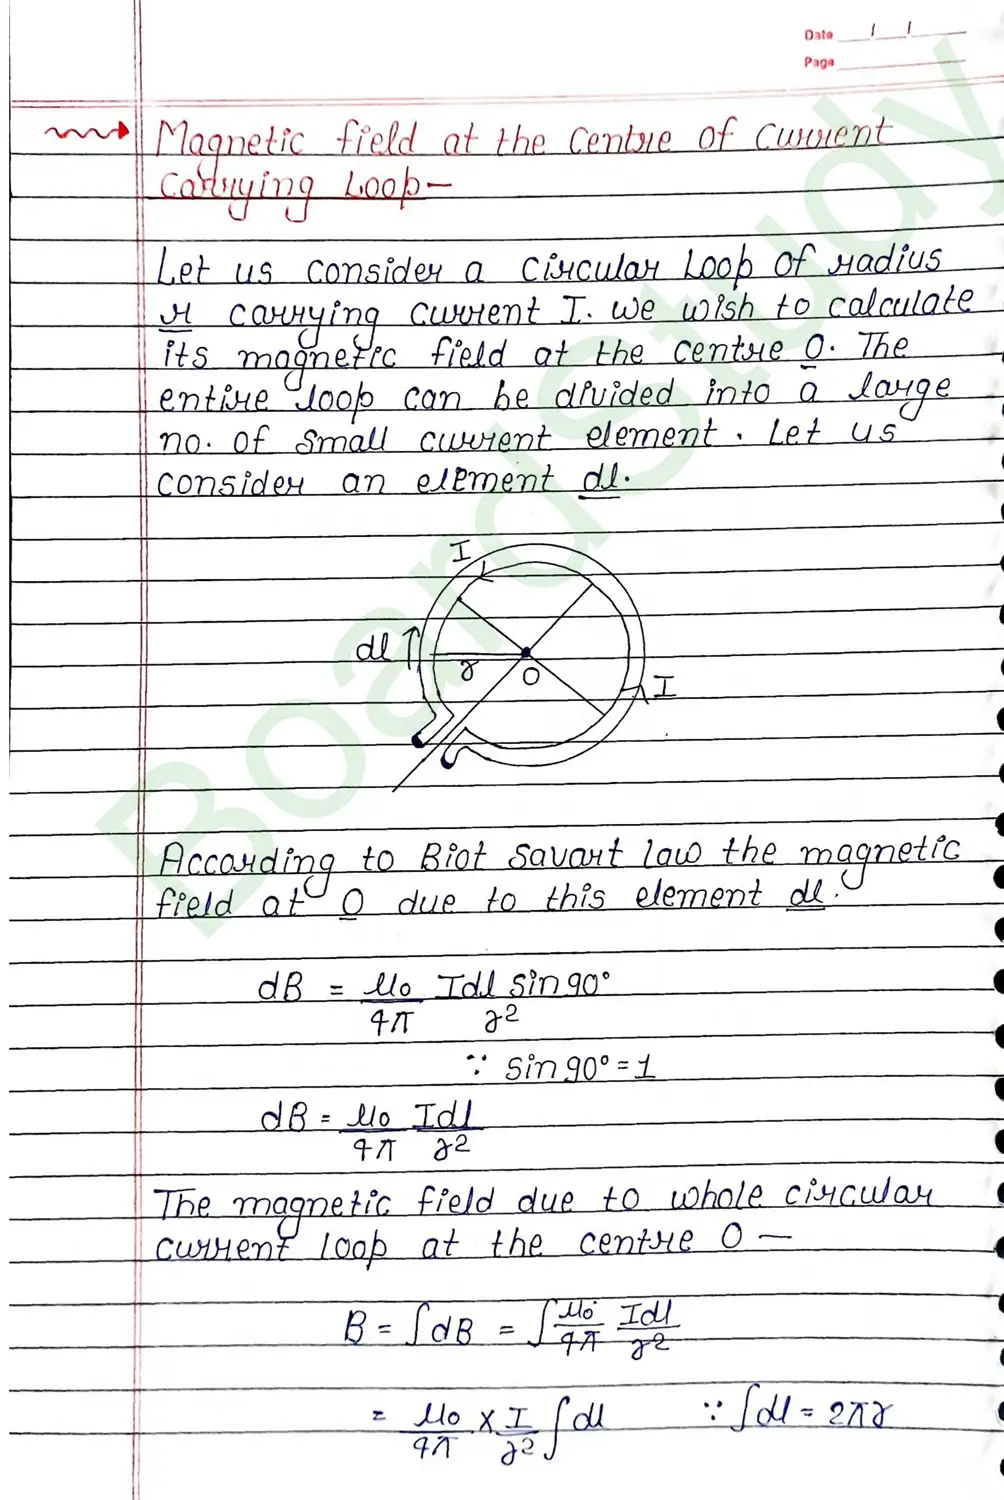 Date / /
Page
Magnetic field at the Centre of Current
Carrying Loop-
Let us consider a Circular Loop of radius
r carrying current I. we wish to calculate
its magnetic field at the centre O. The
entire loop can be divided into a large
no. of small current element. Let us
consider an element dl.
I
dl
r
O
I
According to Biot Savart law the magnetic
field at O due to this element dl.
dB = μ₀/4π Idl sin90°/r²
∵ sin90° = 1
dB = μ₀/4π Idl/r²
The magnetic field due to whole circular
current loop at the centre O —
B = ∫dB = ∫μ₀/4π Idl/r²
= μ₀/4π × I/r² ∫dl ∵ ∫dl = 2πr
BoardStudy